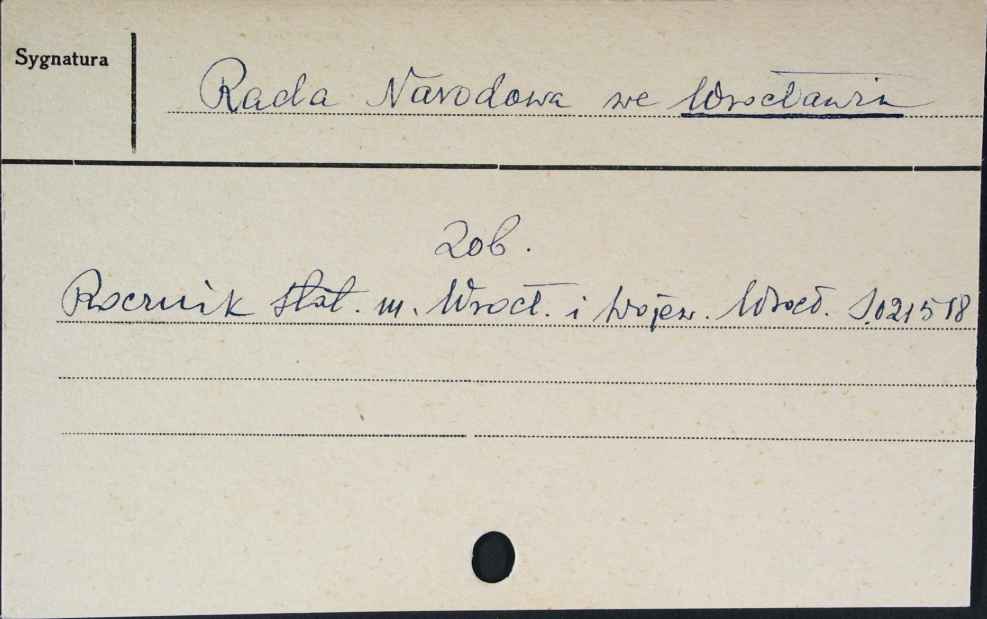 Sygnatura
Rada Narodowa we Wrocławiu
Zob.
Rocznik stat. m. Wrocł. i wojew. Wrocł. S.021518